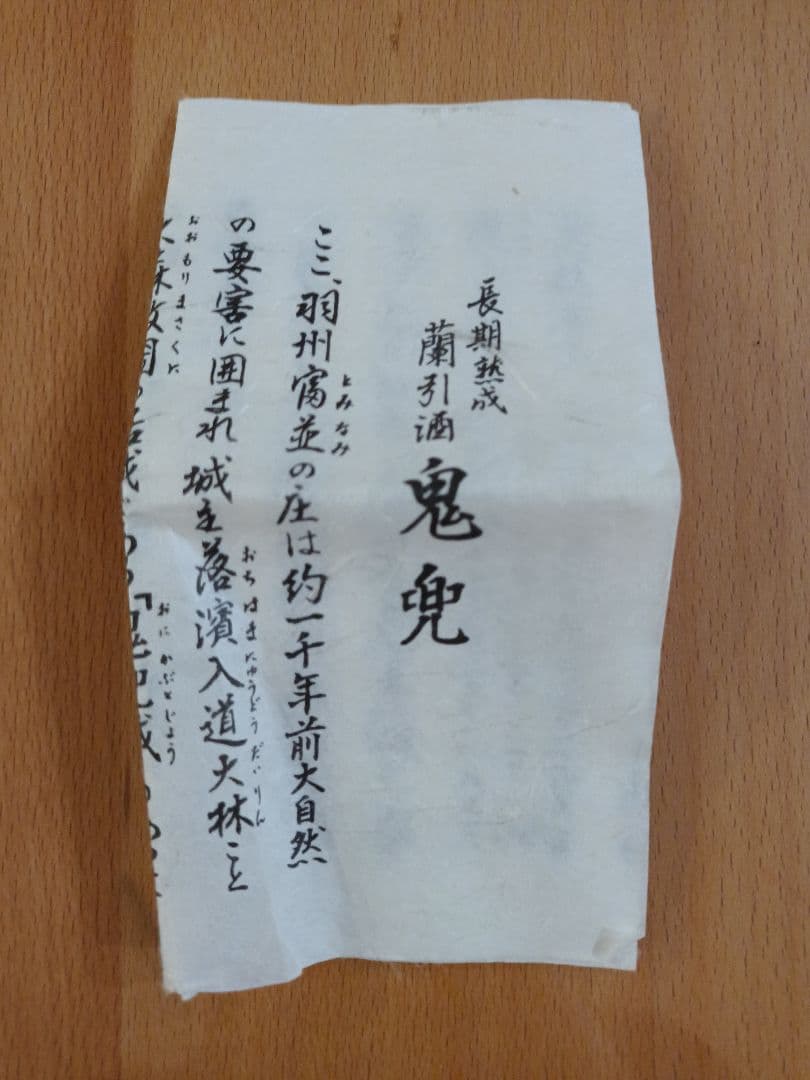 長期熟成
蘭引酒
鬼兜
ここ、羽州富並の庄は約一千年前大自然
とみなみ
の要害に囲まれ城主落濱入道大林こと
おちはまにゅうどうだいりん
おおもりまさくに
おにかぶとじょう